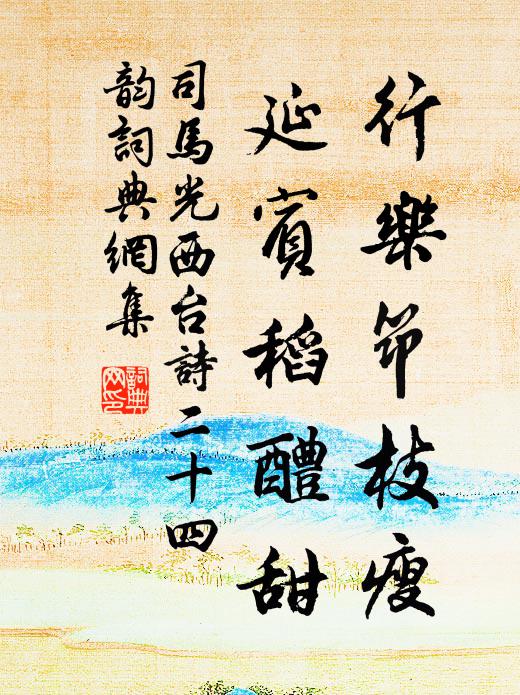 行樂笻枝瘦
延賓稻醴甜
司馬光西台詩二十四
韵詞典網集
詞典網印